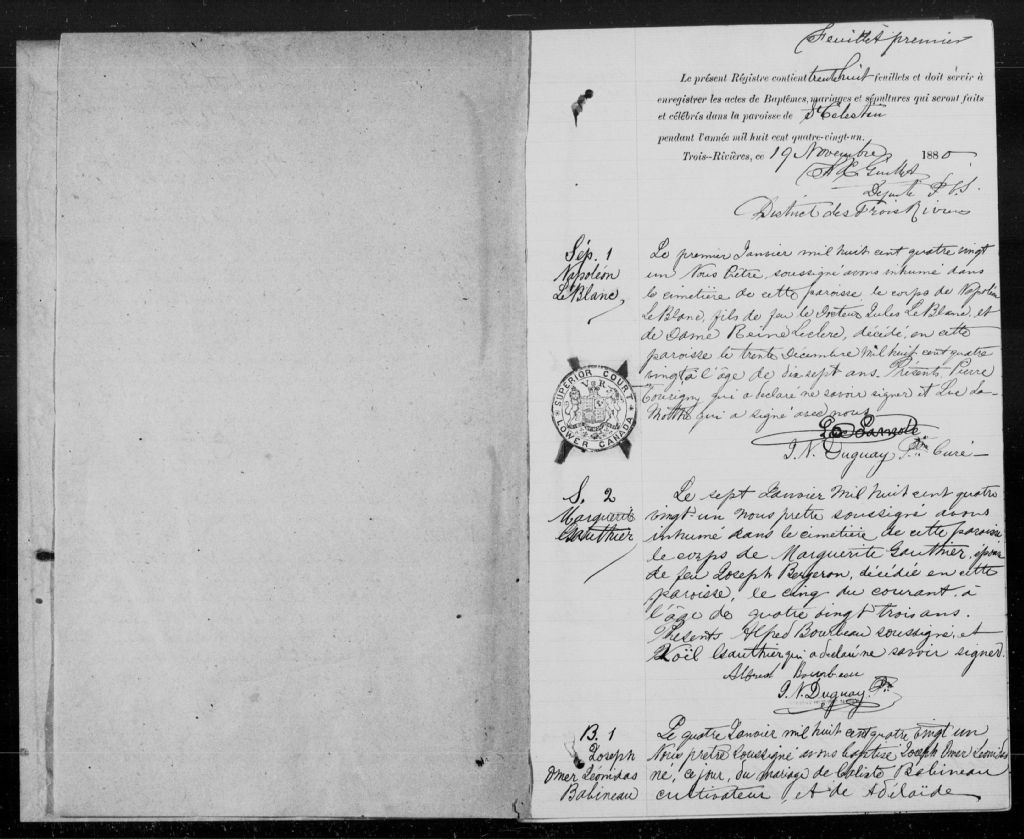 Feuillet premier
Le présent Régistre contient trente huit feuillets et doit servir à
enregistrer les actes de Baptêmes, mariages et sépultures qui seront faits
et célébrés dans la paroisse de St Célestin
pendant l'année mil huit cent quatre-vingt-un.
Trois-Rivières, ce 19 Novembre 1880
Députe P.C.S.
District des Trois Rivières
Sép. 1
Napoléon
LeBlanc
Le premier Janvier mil huit cent quatre vingt
un Nous Prêtre soussigné avons inhumé dans
le cimetière de cette paroisse le corps de Napoléon
LeBlanc, fils de feu le Docteur Jules LeBlanc, et
de Dame Reine Leclerc, décédé, en cette
paroisse le trente Décembre mil huit cent quatre
vingt, à l'âge de dix sept ans. Présents, Pierre
Tourigny qui a déclaré ne savoir signer et Luc La-
Mothe qui a signé avec nous
SUPERIOR COURT
V R
LOWER CANADA
J. N. Duguay Ptre Curé
S. 2
Marguerite
Gauthier
Le sept Janvier mil huit cent quatre
vingt-un nous prêtre soussigné avons
inhumé dans le cimetière de cette paroisse
le corps de Marguerite Gauthier, épouse
de feu Joseph Bergeron, décédée en cette
paroisse, le cinq du courant, à
l'âge de quatre vingt trois ans.
Présents Alfred Bourbeau soussigné, et
Noël Gauthier qui a déclaré ne savoir signer.
Alfred Bourbeau
J. N. Duguay Ptre
B. 1
Joseph
Omer Léonidas
Babineau
Le quatre Janvier mil huit cent quatre vingt un
Nous prêtre soussigné avons baptisé Joseph Omer Léonidas
né, ce jour, du mariage de Calixte Babineau
cultivateur, et de Adélaïde